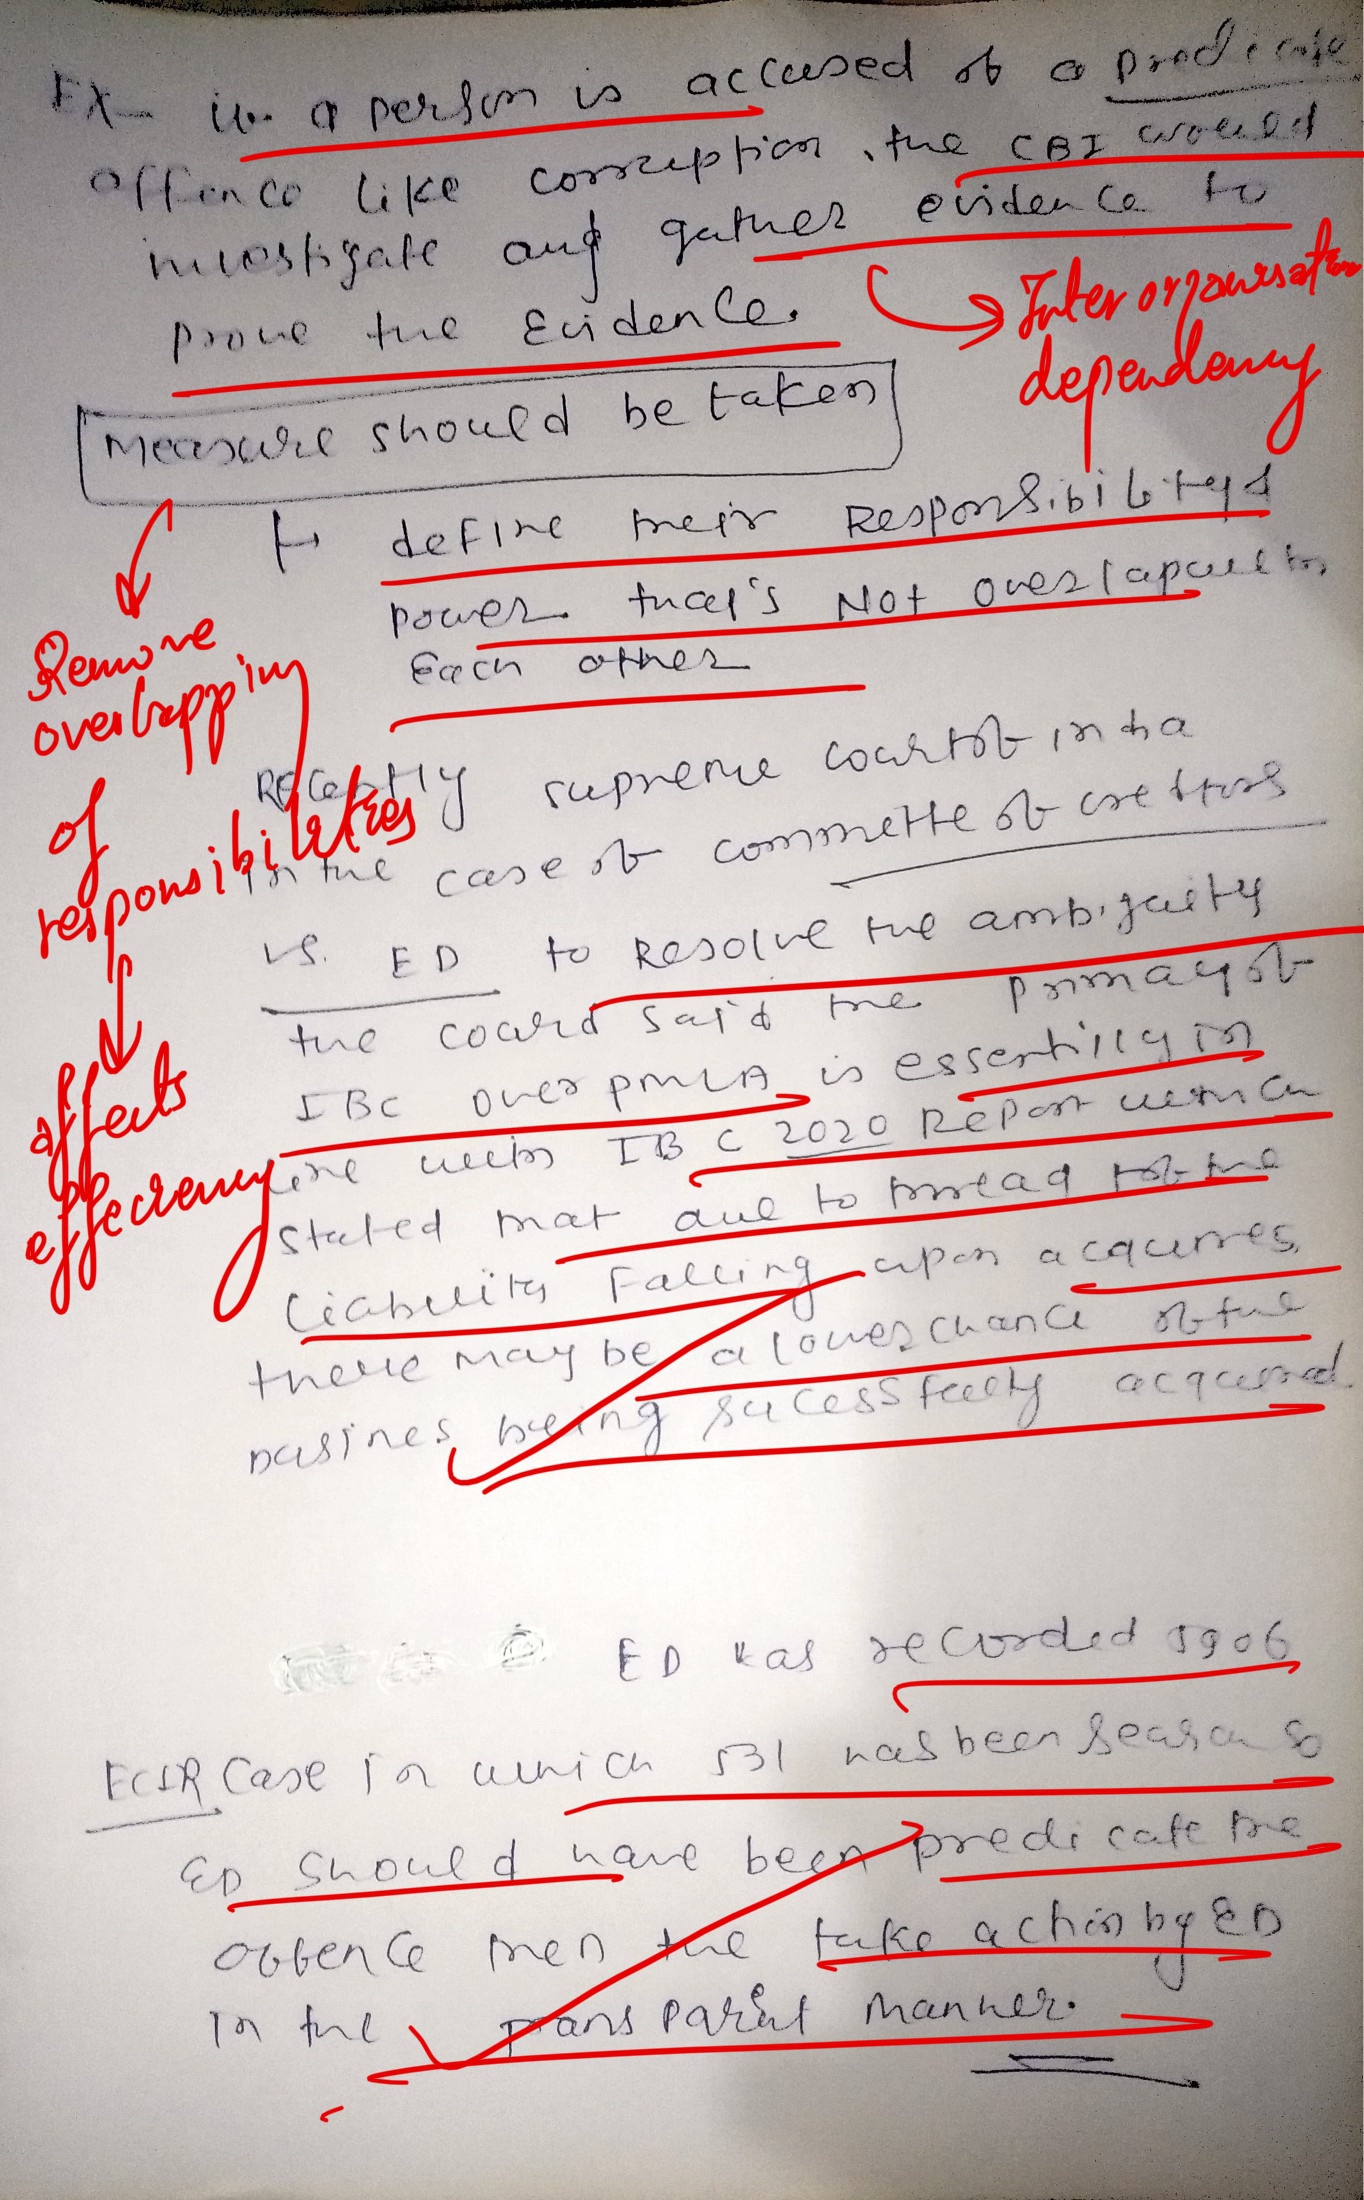 Ex- if a person is accused of a predicate
offence like corruption, the CBI would
investigate and gather evidence to
prove the Evidence.
Inter organisation
dependency
Measure should be taken
define their Responsibility &
power that's Not overlap with
Each other
Remove
overlapping
of
responsibilities
affects
efficiency
Recently supreme court of india
in the case of committe of creditors
vs. ED to Resolve the ambiguity
the court said the primacy of
IBC over PMLA is essentilly in
line with IBC 2020 Report which
stated that due to thread of the
liability falling upon acquires,
there may be a lower chance of the
busines being sucessfully acquired
ED has recorded 5906
ECIR Case in which 531 has been search so
ED should have been predicate the
offence then the take action by ED
in the transparent manner.